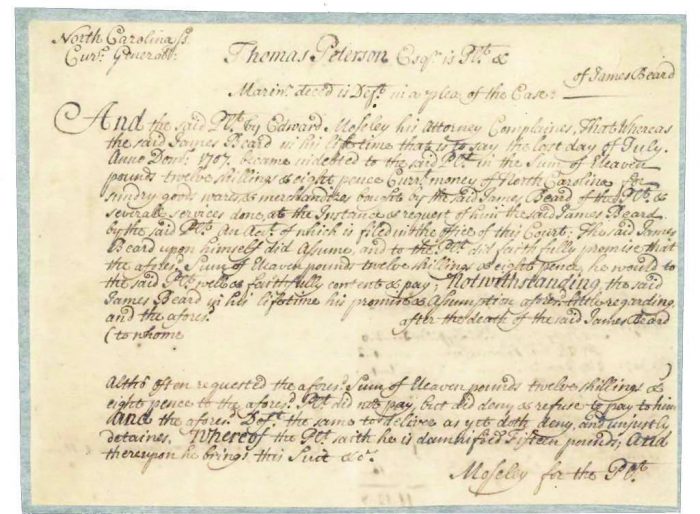 North Carolina ss.
Cur. Generall:
Thomas Peterson Esqr. is Plt. &
of James Beard
Marinr. decd is Deft. in a plea of the Case:
And the said Plt. by Edward Moseley his Attorney Complaines, That Whereas
the said James Beard in his lifetime that is to say the last day of July.
Anno Domi: 1707. became indebted to the said Plt. in the Sum of Eleaven
pounds twelve shillings & eight pence Currt. money of North Carolina for
sundry goods wares & merchandizes bought by the said James Beard of the Plt. &
severall services done at the Instance & request of him the said James Beard
by the said Plt. An Acct. of which is filed in the office of this Court: The said James
Beard upon himself did Assume, and to the Plt. did faithfully promise that
the afores. Sum of Eleaven pound twelve shillings & eight pence, he would to
the said Plt. well & faithfully content & pay; Notwithstanding, the said
James Beard in his lifetime his promise & Asumption afores. little regarding,
and the afores. after the death of the said James Beard
(to whome
Altho' often requested the afores. Sum of Eleaven pounds twelve shillings &
eight pence to the afores. Plt. did not pay, but did deny & refuse to pay to him
And the afores. Deft. the same to deliver as yet doth deny, and unjustly
detaines. Whereof the Plt. saith he is damnified Fifteen pounds; And
thereupon he brings this Suit &c.
Moseley for the Plt.